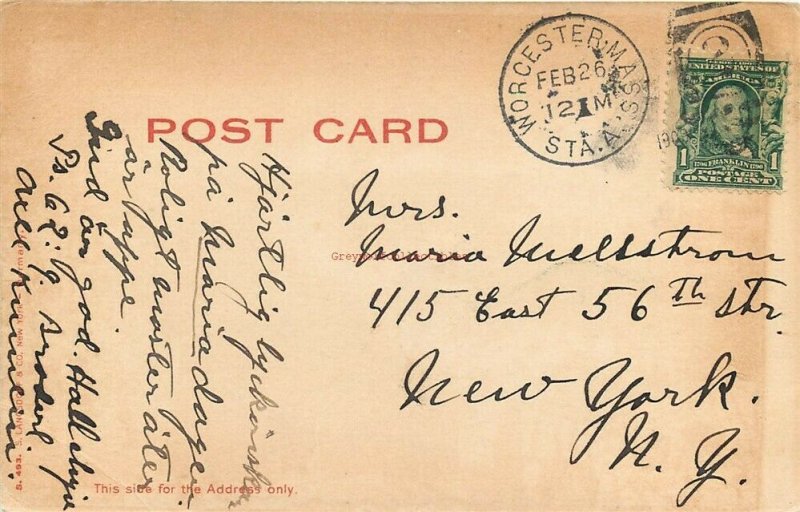 POST CARD
WORCESTER, MASS.
FEB 26
12 1 M
STA. A.
190
UNITED STATES OF
AMERICA
1 FRANKLIN 1
POSTAGE
ONE CENT
Mrs.
Maria Mellstrom
415 East 56th Str.
New York.
N. Y.
Hjärtlig lyckönskan
på Maria dagen.
Roligt moster åter
är uppe.
Gud är god. Halleluja
Ps. 62:9.
This side for the Address only.
S. 493. S. LANGSDORF & CO. NEW YORK
Greyhoundcollectibles